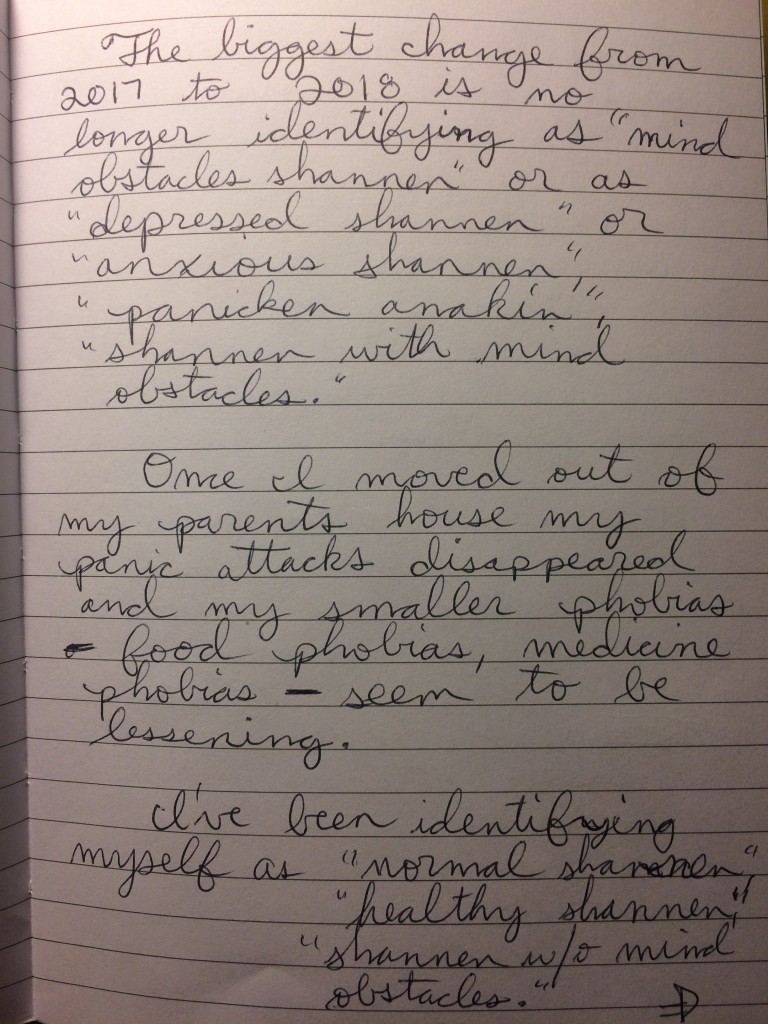 The biggest change from
2017 to 2018 is no
longer identifying as "mind
obstacles shannen" or as
"depressed shannen" or
"anxious shannen",
"panicken anakin",
"shannen with mind
obstacles."
Once I moved out of
my parents house my
panic attacks disappeared
and my smaller phobias
- food phobias, medicine
phobias - seem to be
lessening.
I've been identifying
myself as "normal shannen",
"healthy shannen",
"shannen w/o mind
obstacles."